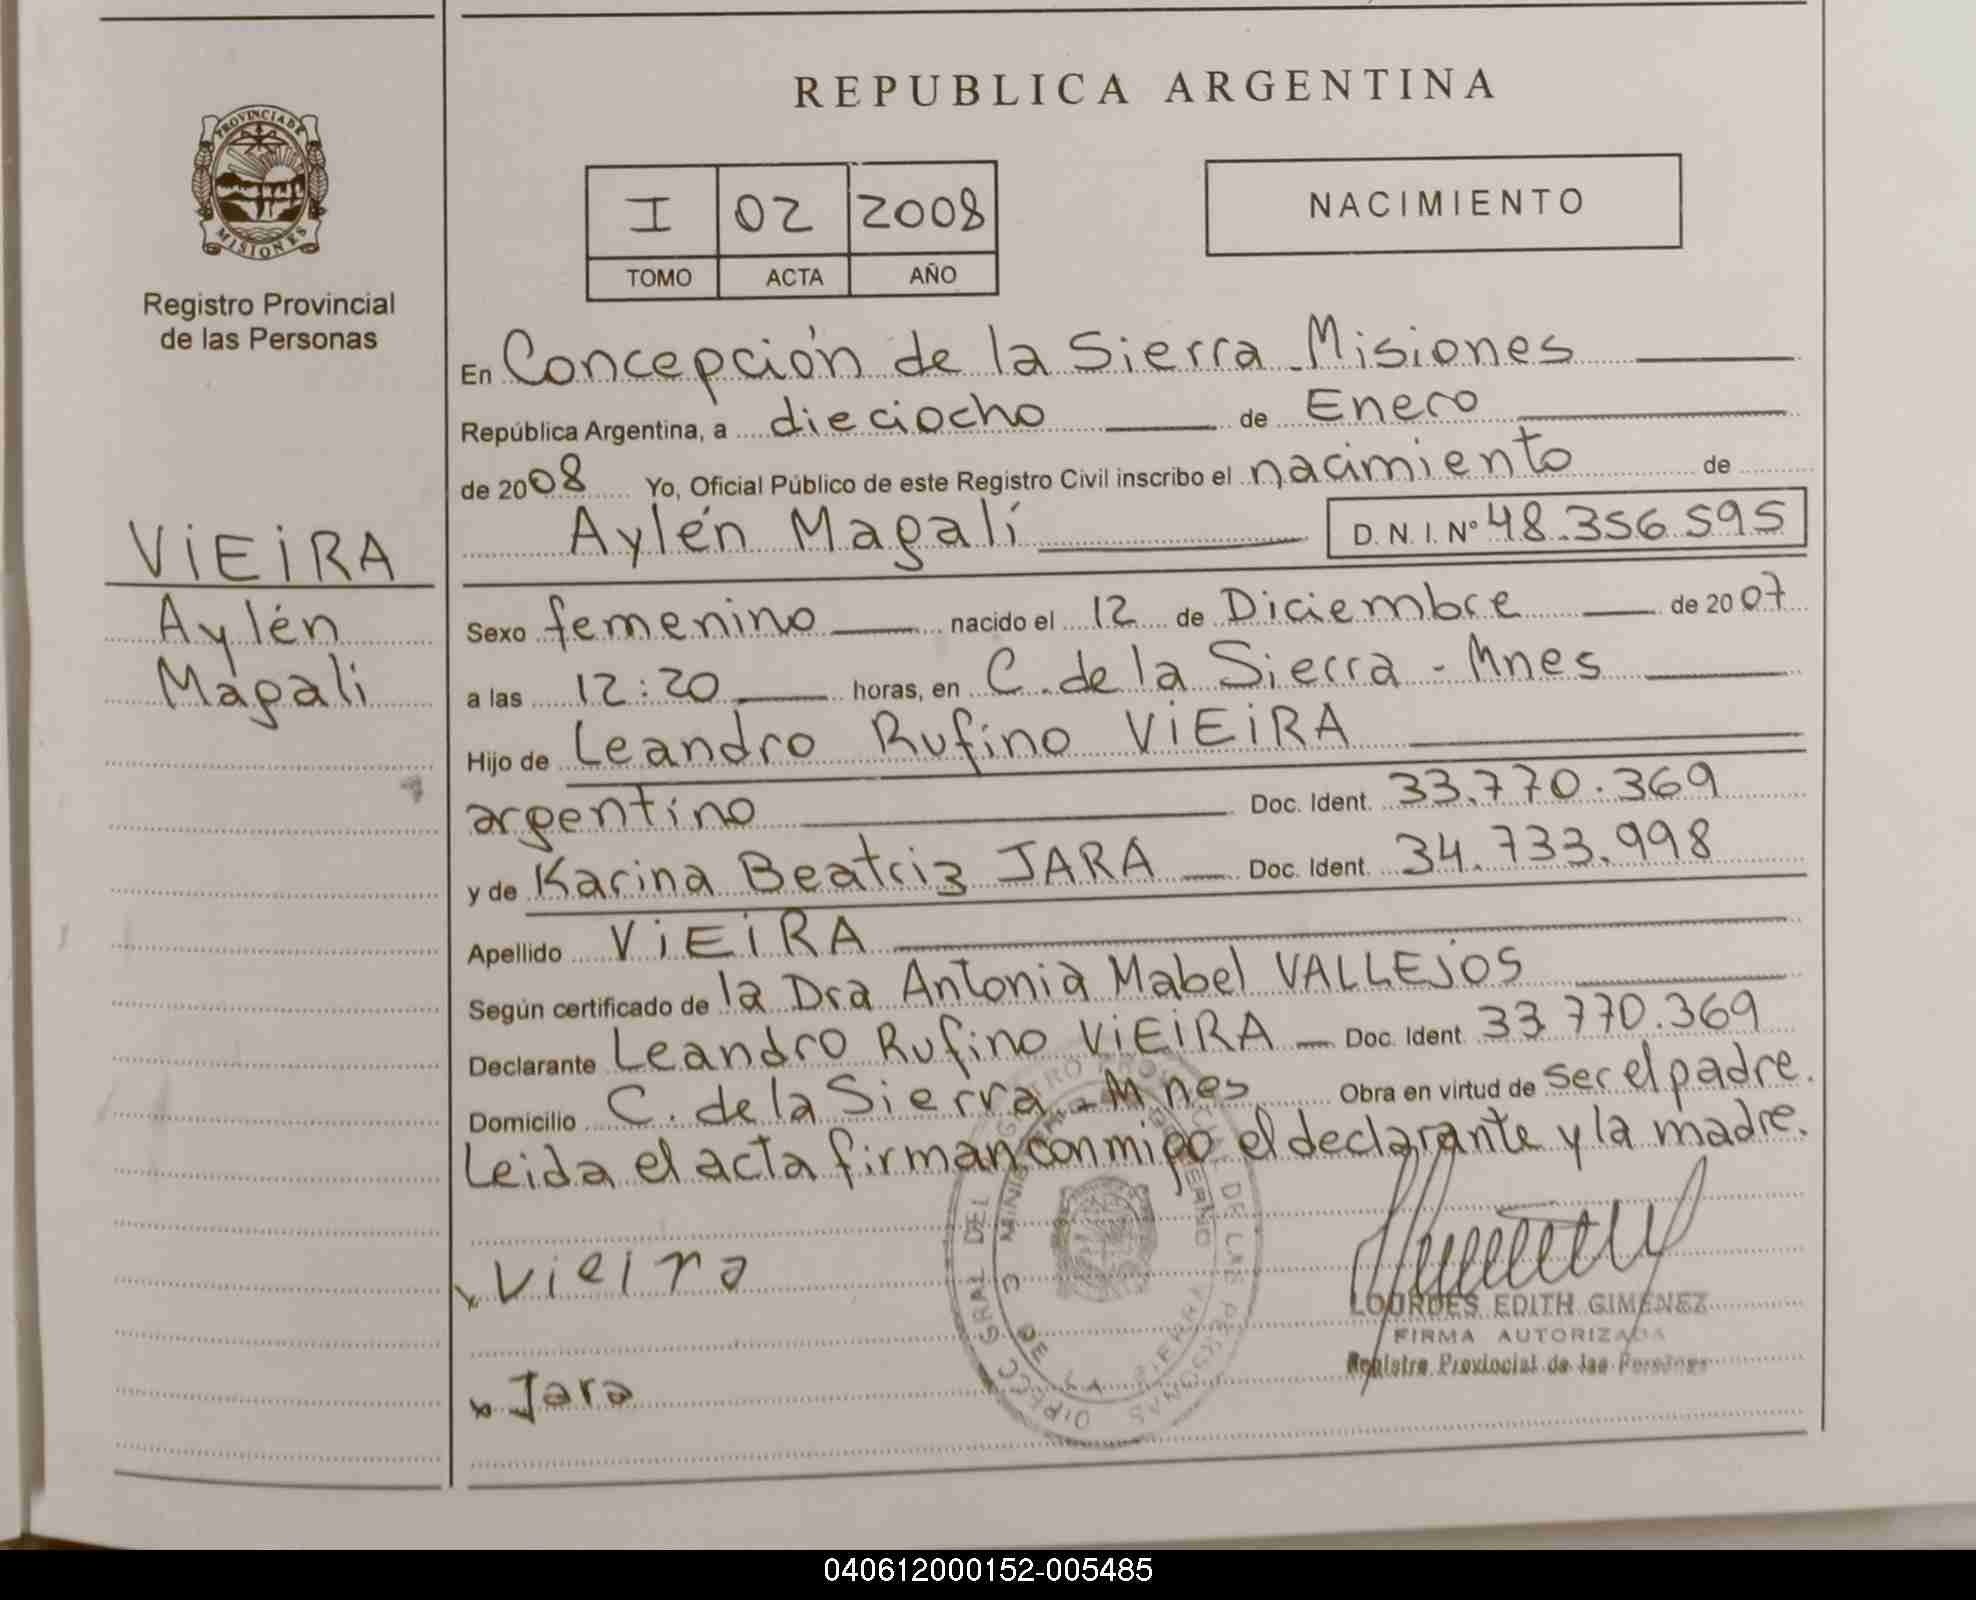 REPUBLICA ARGENTINA
PROVINCIA DE
MISIONES
Registro Provincial
de las Personas
I 02 2008
TOMO ACTA AÑO
NACIMIENTO
En Concepción de la Sierra - Misiones
República Argentina, a dieciocho de Enero
de 2008 Yo, Oficial Público de este Registro Civil inscribo el nacimiento de
Aylén Magalí D.N.I. Nº 48.356.595
VIEIRA
Aylén
Magalí
Sexo femenino nacido el 12 de Diciembre de 2007
a las 12:20 horas, en C. de la Sierra - Mnes
Hijo de Leandro Rufino VIEIRA
argentino Doc. Ident. 33.770.369
y de Karina Beatriz JARA Doc. Ident. 34.733.998
Apellido VIEIRA
Según certificado de la Dra Antonia Mabel VALLEJOS
Declarante Leandro Rufino VIEIRA Doc. Ident. 33.770.369
Domicilio C. de la Sierra - Mnes Obra en virtud de ser el padre.
Leida el acta firman conmigo el declarante y la madre.
x Vieira
x Jara
LOURDES EDITH GIMENEZ
FIRMA AUTORIZADA
Registro Provincial de las Personas
040612000152-005485